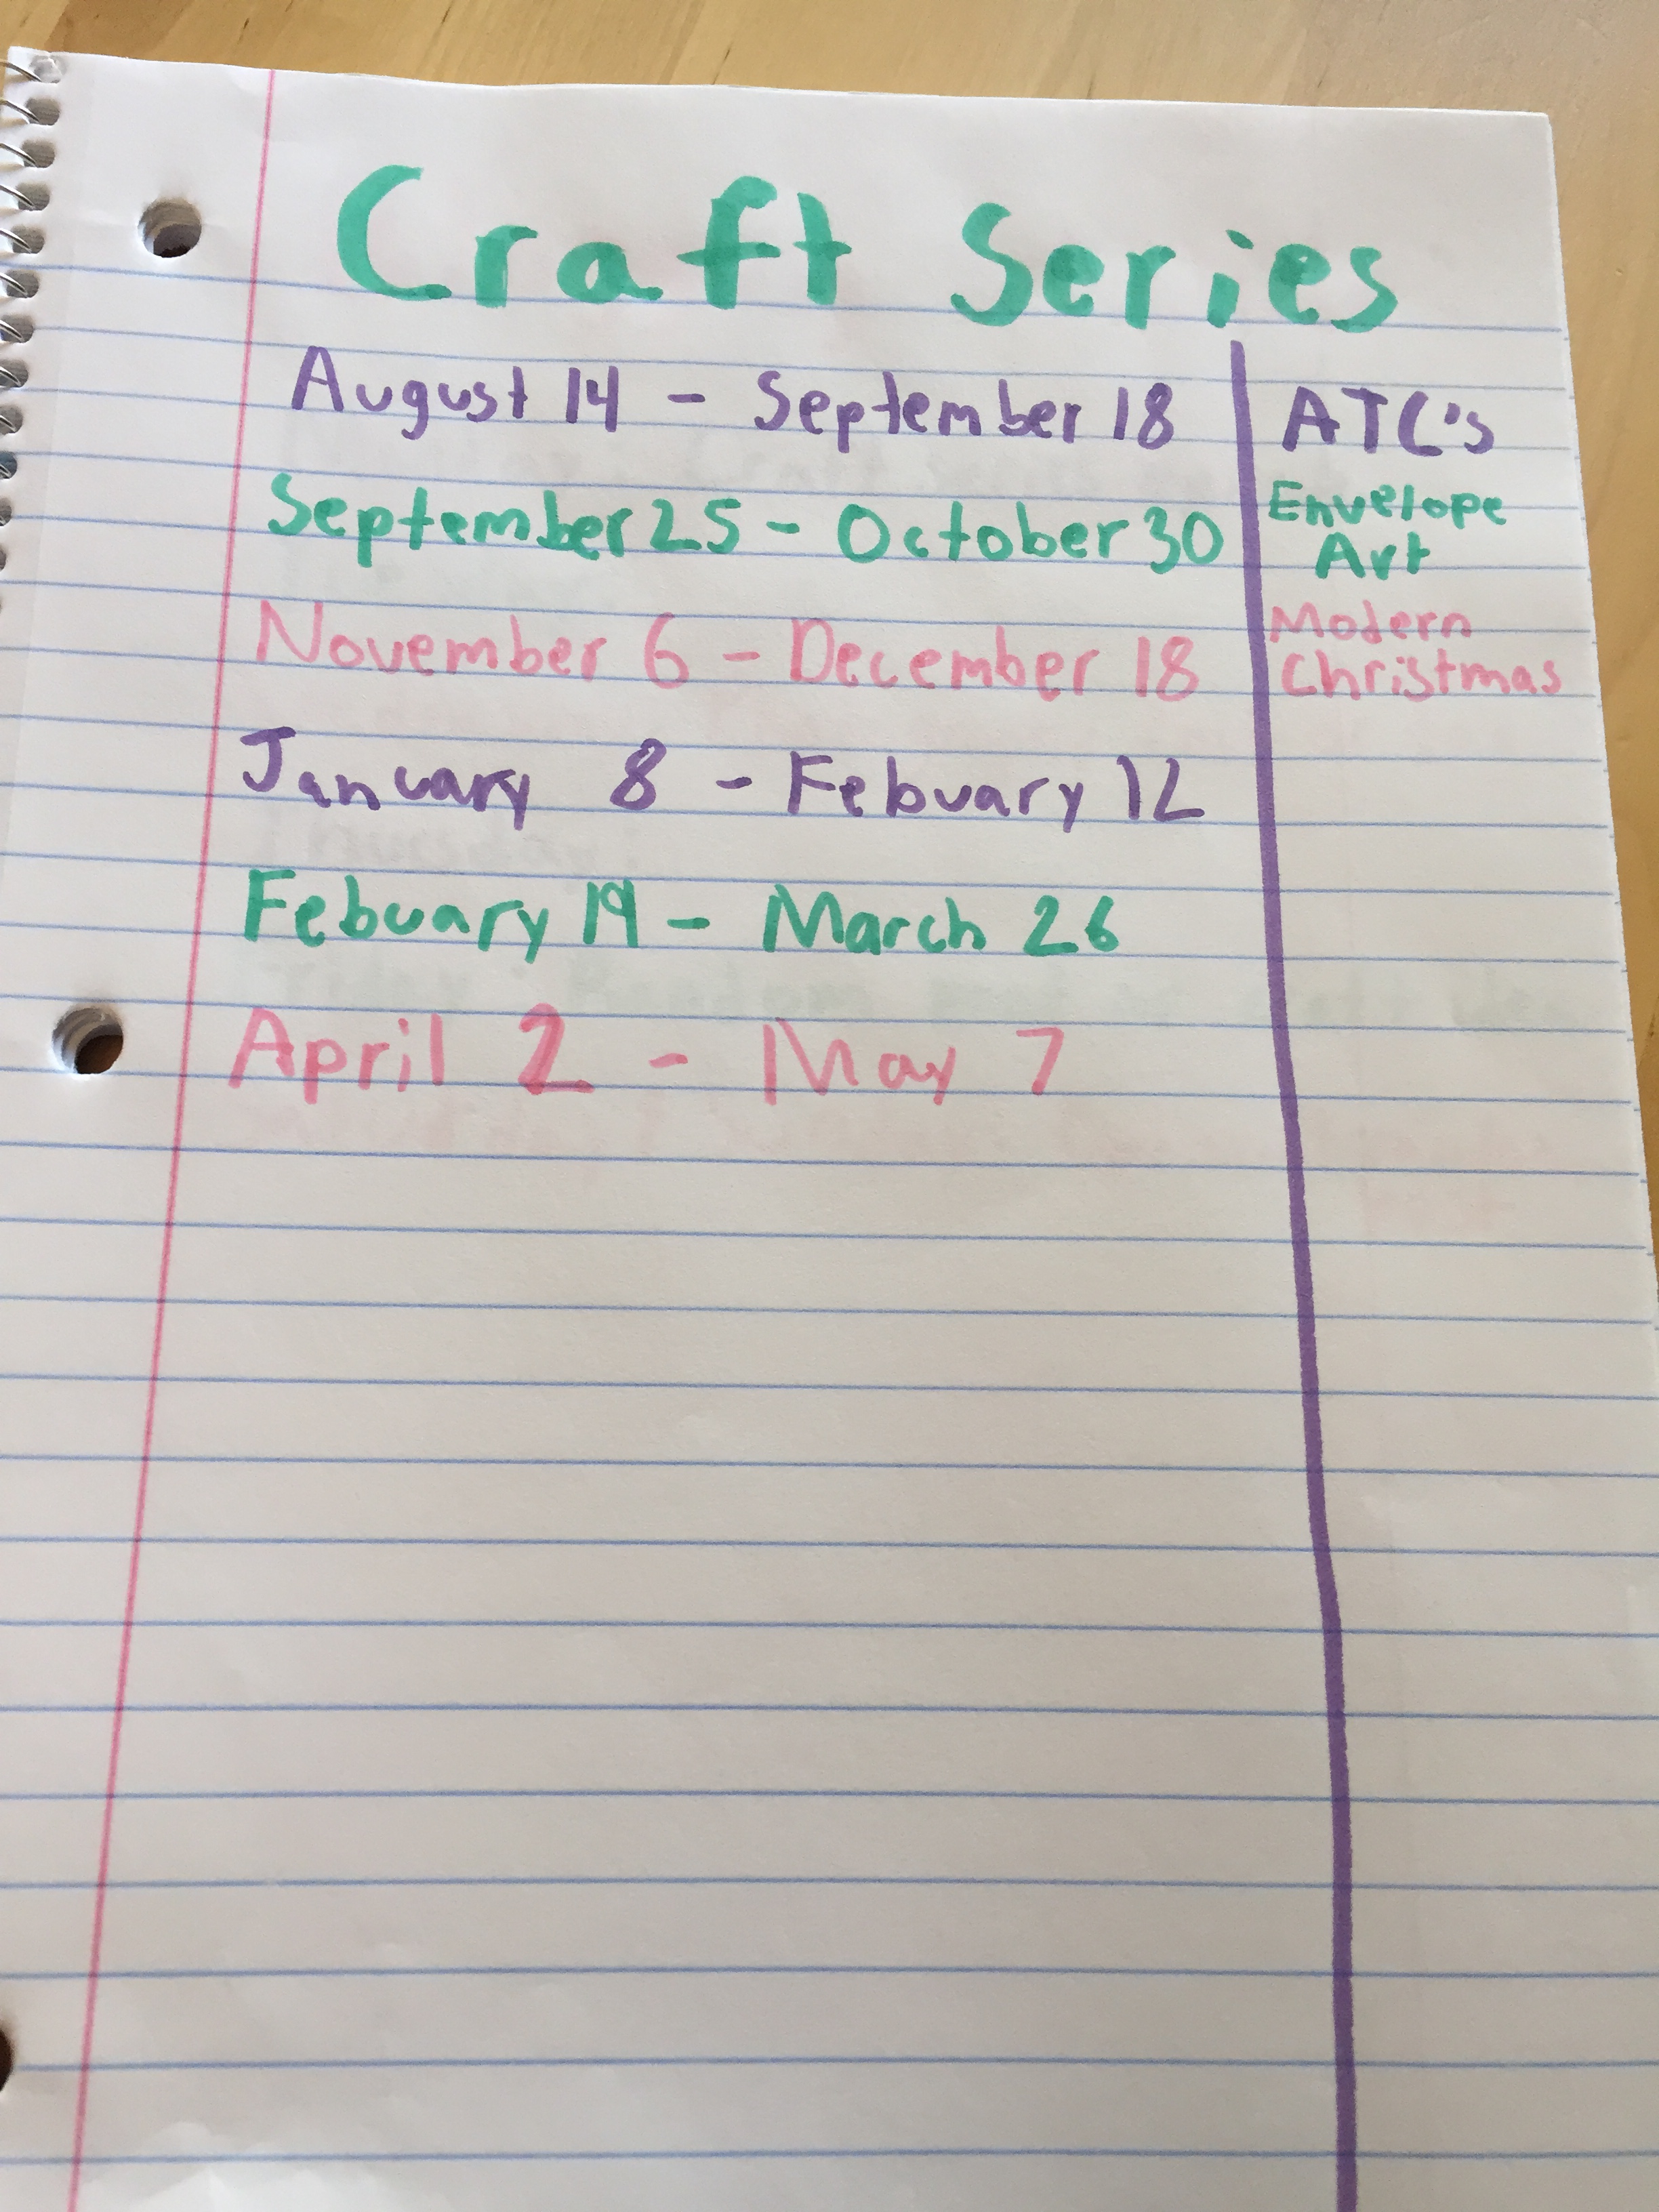 Craft Series
August 14 - September 18 ATC's
September 25 - October 30 Envelope
Art
November 6 - December 18 Modern
Christmas
January 8 - Febuary 12
Febuary 19 - March 26
April 2 - May 7